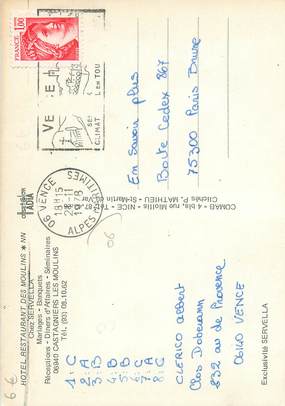 HOTEL RESTAURANT DES MOULINS * NN
Chez SERVELLA
Mariages - Banquets
Réceptions - Dîners d'Affaires - Séminaires
06940 CASTAGNIERS LES MOULINS
Tél. (93) 08.10.62
1: C
2: A
3: B
4: B
5: C
6: B
7: A
8: C
CLERICO Albert
Clos Dobermann
832 av de Provence
06140 VENCE
06
6 €
COMAB - 4 bis, rue Miollis - NICE - Tél.
Clichés P. MATHIEU - St-Martin du Var
Exclusivité SERVELLA
1,00
FRANCE
VE
E
SE
CLIMAT
LEnTOU
06 VENCE
18H15
28-11
1978
ALPES MARITIMES
En savoir plus
Boite Cedex 867
75300 Paris Brune